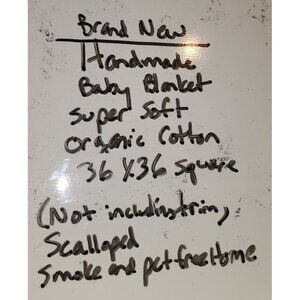 Brand New
Handmade
Baby Blanket
Super Soft
organic Cotton
36 X 36 Square
(Not including trim,
Scalloped
Smoke and pet free Home